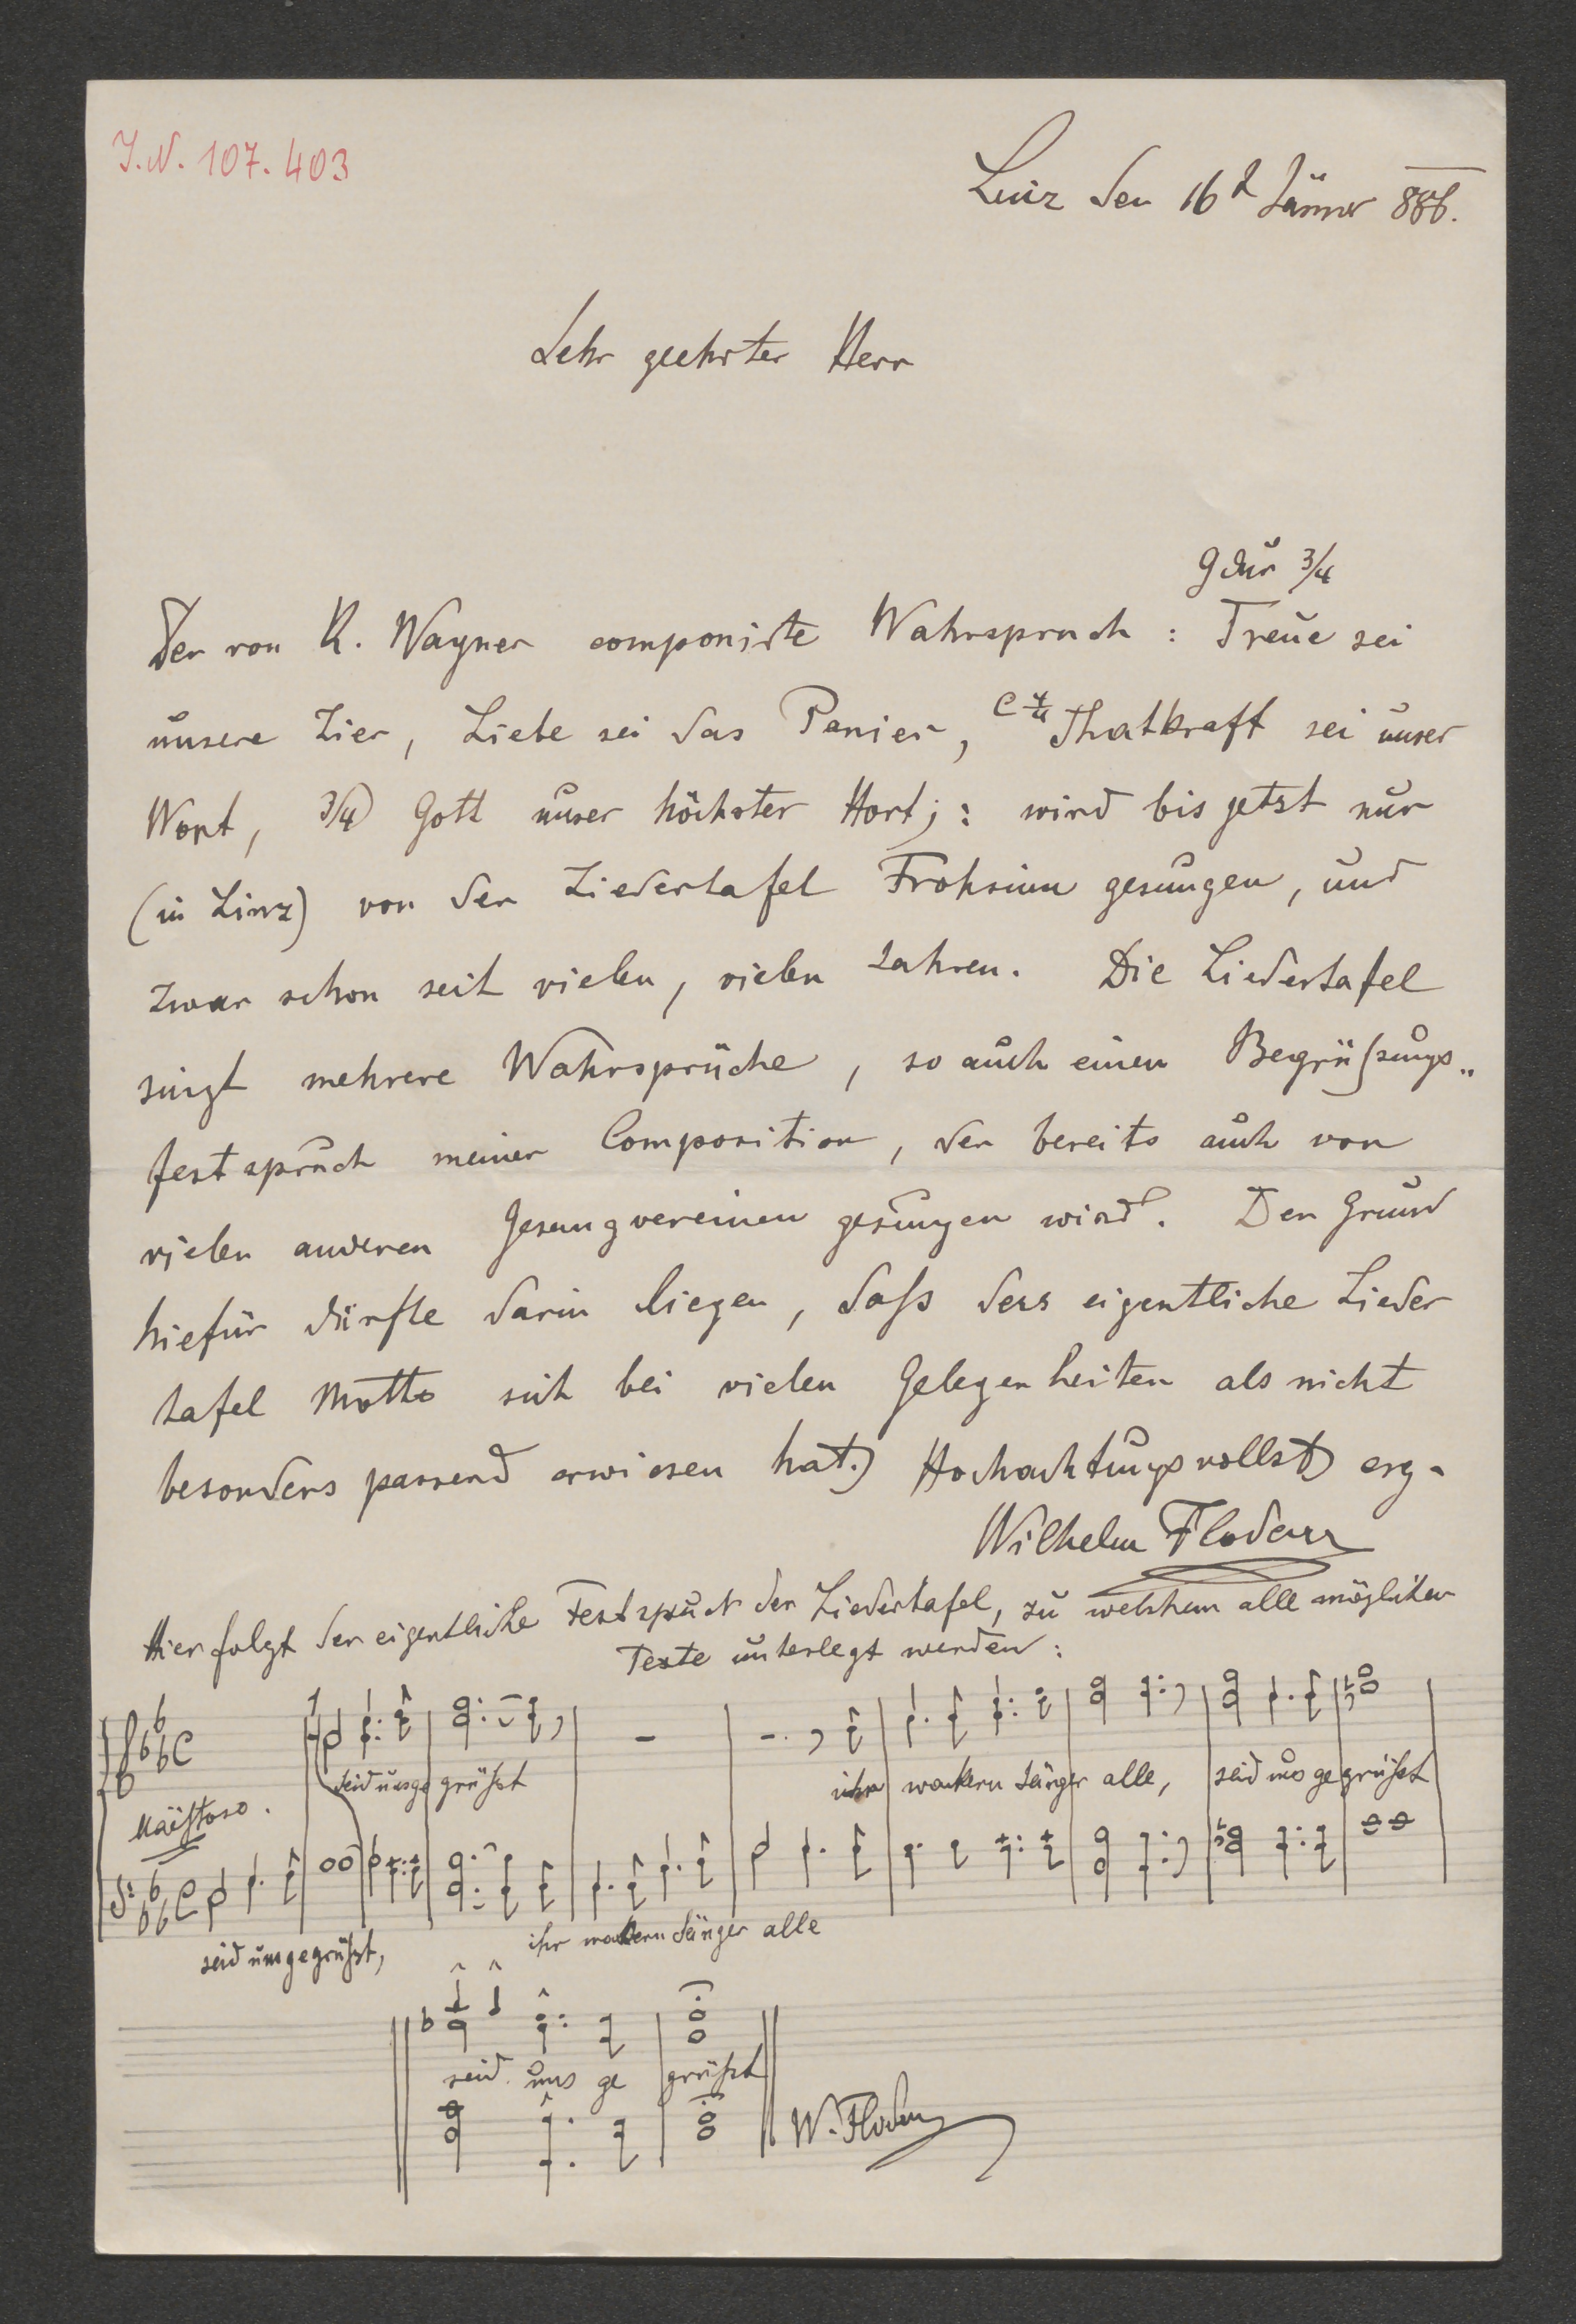 I.N. 107.403
Linz den 16t Jänner 886.
Sehr geehrter Herr
G dur 3/4
Der von R. Wagner componirte Wahrspruch: Treue sei
unsere Zier, Liebe sei das Panier, C 4/4 Thatkraft sei unser
Wort, 3/4 Gott unser höchster Hort; : wird bis jetzt nur
(in Linz) von der Liedertafel Frohsinn gesungen, und
zwar schon seit vielen, vielen Jahren. Die Liedertafel
singt mehrere Wahrsprüche, so auch einen Begrüßungs„
festspruch meiner Composition, der bereits auch von
vielen anderen Gesangvereinen gesungen wird. Der Grund
hiefür dürfte darin liegen, daß der eigentliche Lieder
tafel Motto sich bei vielen Gelegenheiten als nicht
besonders passend erwiesen hat. Hochachtungsvollst erg.
Wilhelm Floderer
Hier folgt der eigentliche Festspruch der Liedertafel, zu welchem alle möglichen
Texte unterlegt werden:
seid uns gegrüßt ihr wackern Sänger alle, seid uns gegrüßt
Maëstoso.
seid uns gegrüßt, ihr wackern Sänger alle
seid uns ge grüßt
W. Floderer